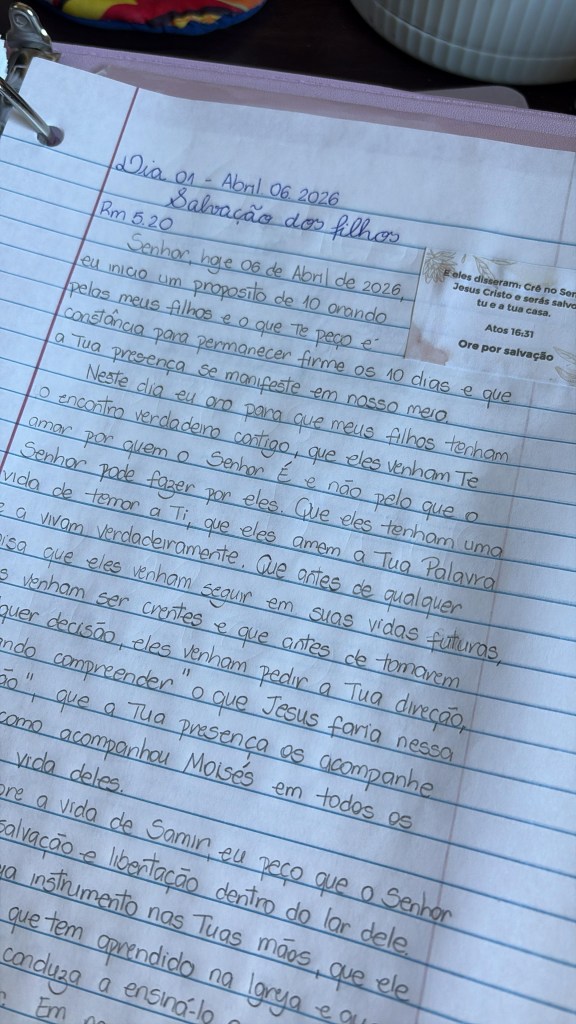 Dia 01 - Abril. 06. 2026
Salvação dos filhos
Rm 5.20
Senhor hoje 06 de Abril de 2026,
eu inicio um proposito de 10 orando
pelos meus filhos e o que Te peço é
constância para permanecer firme os 10 dias e que
a Tua presença se manifeste em nosso meio.
E eles disseram: Crê no Sen
Jesus Cristo e serás salvo
tu e a tua casa.
Atos 16:31
Ore por salvação
Neste dia eu oro para que meus filhos tenham
o encontro verdadeiro contigo, que eles venham Te
amar por quem o Senhor É e não pelo que o
Senhor pode fazer por eles. Que eles tenham uma
vida de temor a Ti, que eles amem a Tua Palavra
e a vivam verdadeiramente. Que antes de qualquer
oisa que eles venham seguir em suas vidas futuras,
s venham ser crentes e que antes de tomarem
quer decisão, eles venham pedir a Tua direção,
ndo compreender "o que Jesus faria nessa
ão", que a Tua presença os acompanhe
como acompanhou Moisés em todos os
vida deles.
bre a vida de Samir, eu peço que o Senhor
salvação e libertação dentro do lar dele.
ja instrumento nas Tuas mãos, que ele
que tem aprendido na Igreja e
conduza a ensiná-lo
Em